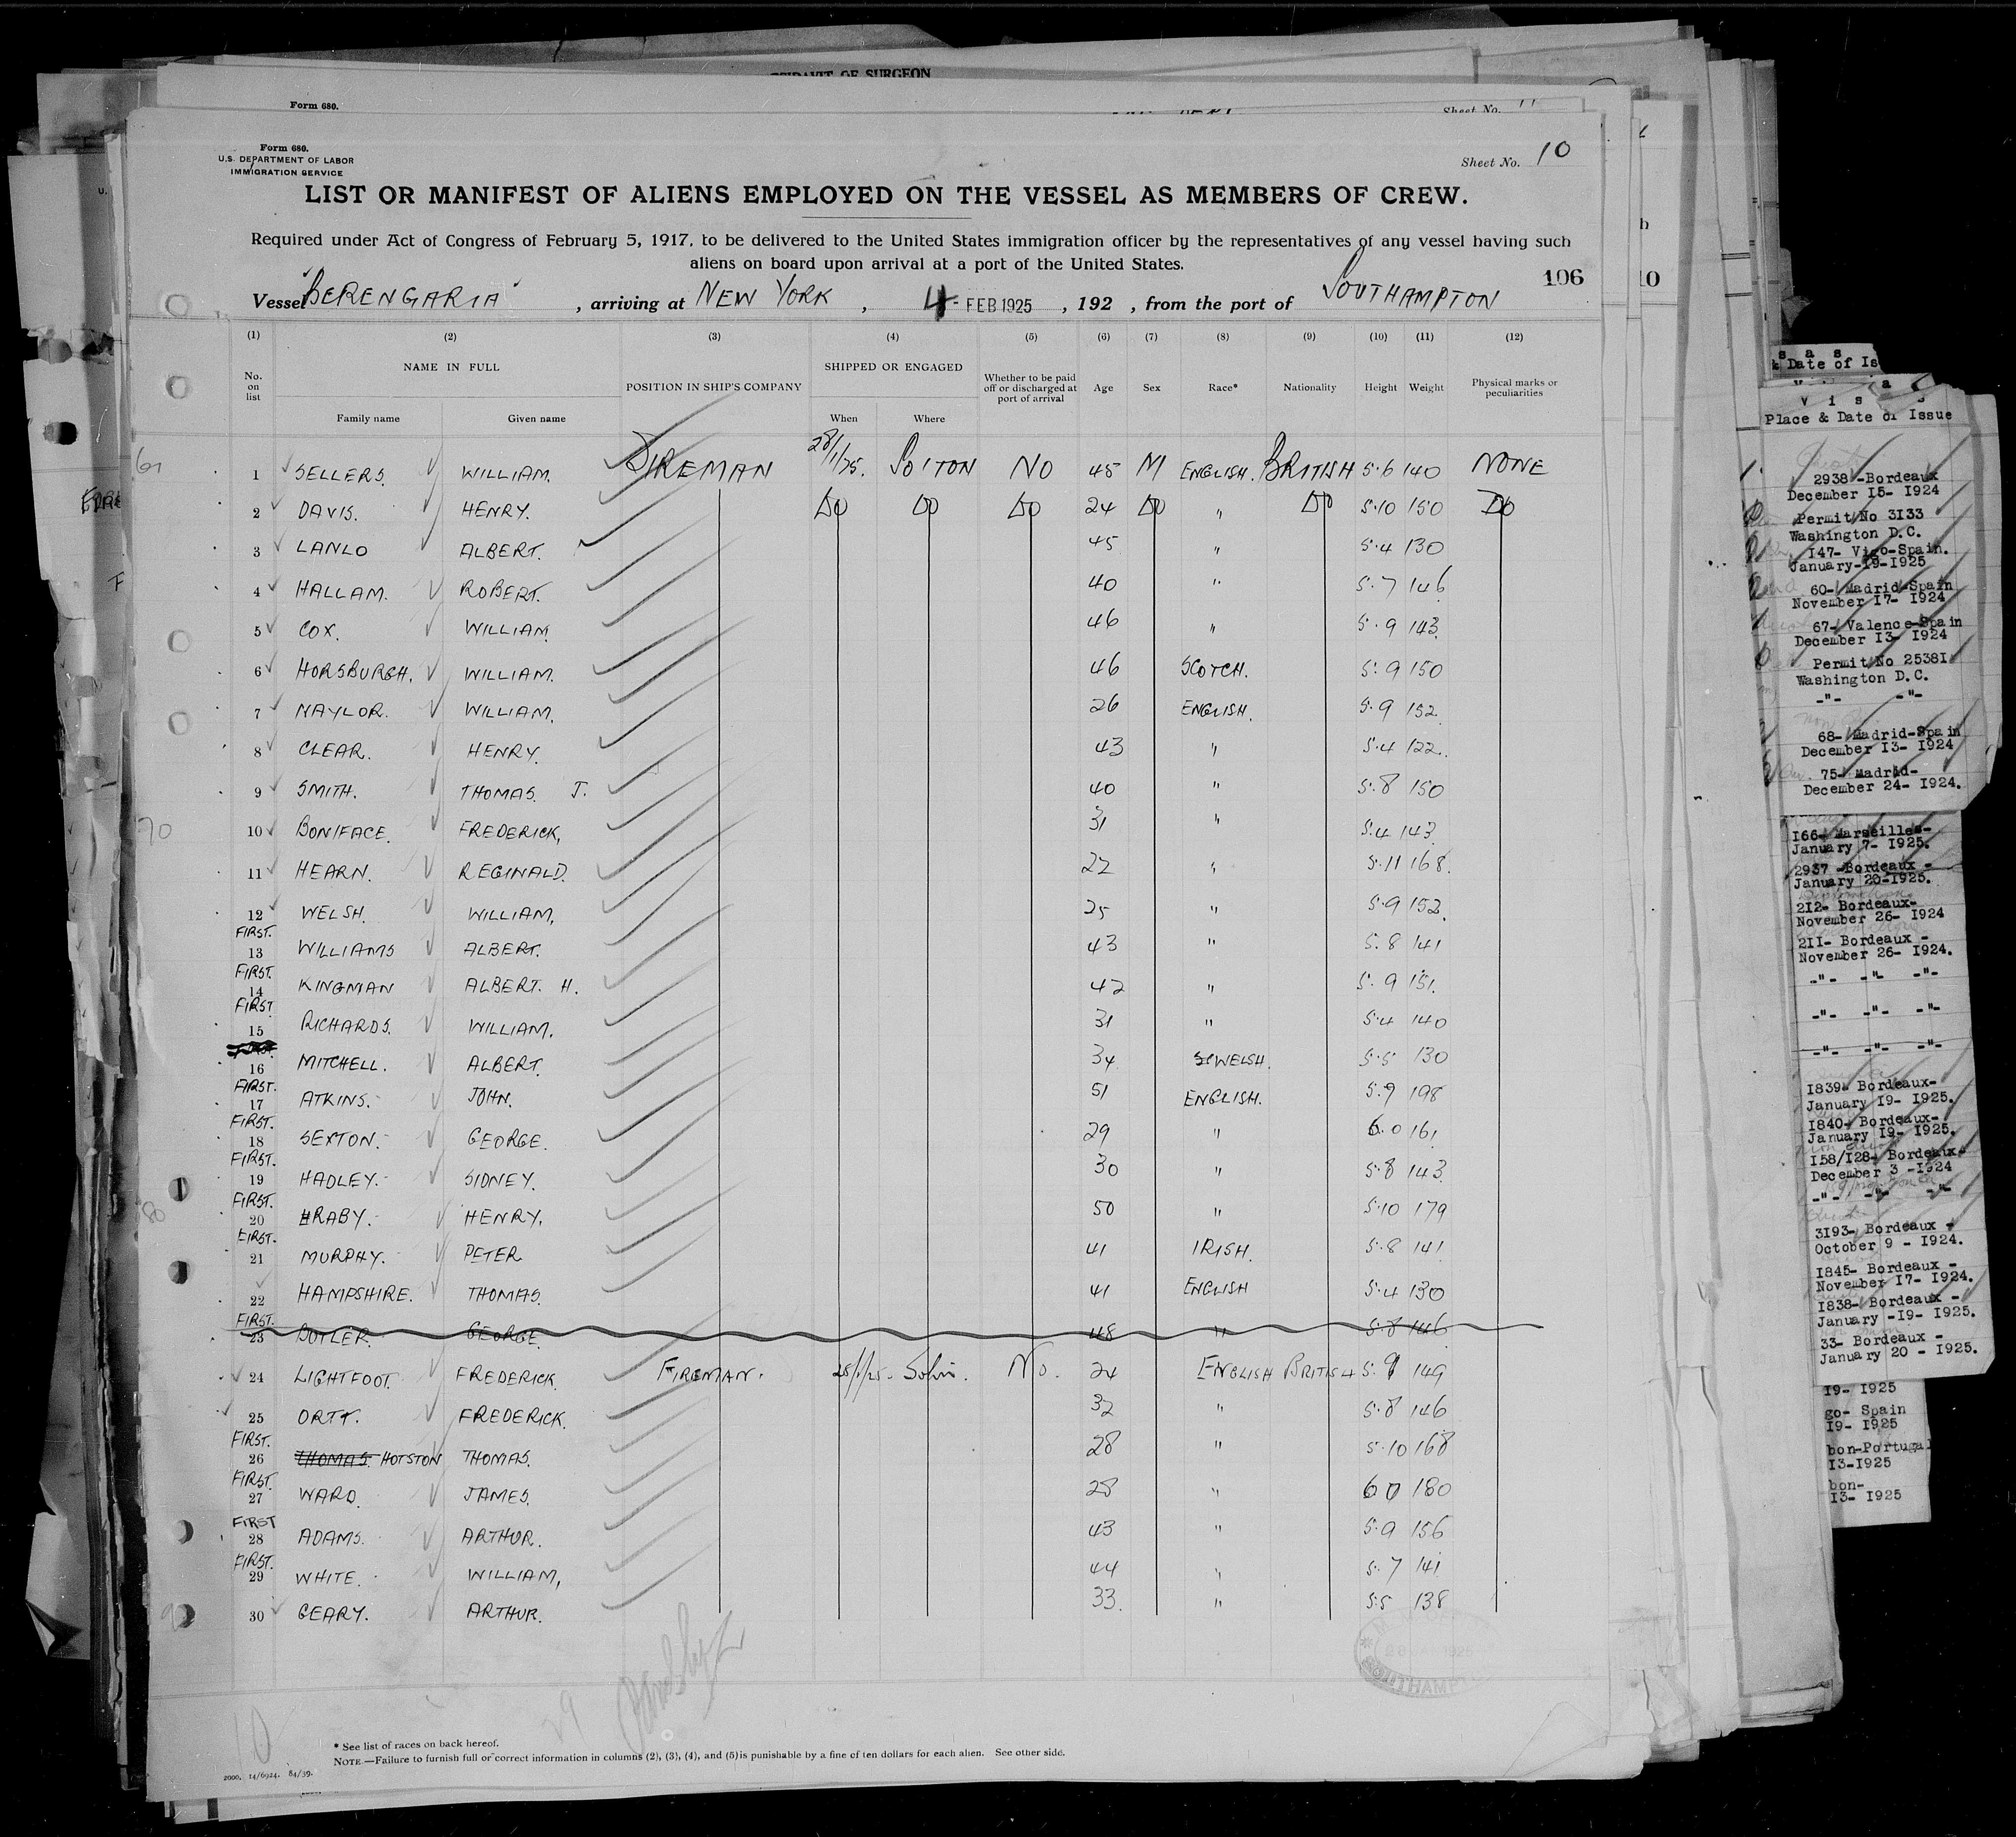 AFFIDAVIT OF SURGEON
Form 680.
Sheet No. 11
Form 680.
U.S. DEPARTMENT OF LABOR
IMMIGRATION SERVICE
Sheet No. 10
LIST OR MANIFEST OF ALIENS EMPLOYED ON THE VESSEL AS MEMBERS OF CREW.
Required under Act of Congress of February 5, 1917, to be delivered to the United States immigration officer by the representatives of any vessel having such
aliens on board upon arrival at a port of the United States.
106
Vessel "BERENGARIA", arriving at NEW YORK, 4 - FEB 1925, 192 , from the port of SOUTHAMPTON
(1) (2) (3) (4) (5) (6) (7) (8) (9) (10) (11) (12)
No. on list NAME IN FULL POSITION IN SHIP'S COMPANY SHIPPED OR ENGAGED Whether to be paid off or discharged at port of arrival Age Sex Race* Nationality Height Weight Physical marks or peculiarities
Family name Given name When Where
1 SELLERS. WILLIAM. FIREMAN 28/1/25. SO'TON NO 45 M ENGLISH. BRITISH 5.6 140 NONE
2 DAVIS. HENRY. DO DO DO 24 DO " DO 5.10 150 DO
3 LANLO ALBERT. 45 " 5.4 130
4 HALLAM. ROBERT. 40 " 5.7 146
5 COX. WILLIAM. 46 " 5.9 143
6 HORSBURGH. WILLIAM. 46 SCOTCH. 5.9 150
7 NAYLOR. WILLIAM. 26 ENGLISH. 5.9 152
8 CLEAR. HENRY. 43 " 5.4 122.
9 SMITH. THOMAS. J. 40 " 5.8 150
10 BONIFACE. FREDERICK, 31 " 5.4 143
11 HEARN. REGINALD. 22 " 5.11 168.
12 WELSH. WILLIAM, 25 " 5.9 152.
FIRST. 13 WILLIAMS ALBERT. 43 " 5.8 141
FIRST. 14 KINGMAN ALBERT. H. 42 " 5.9 151.
FIRST 15 RICHARDS. WILLIAM. 31 " 5.4 140
16 MITCHELL. ALBERT. 34 WELSH. 5.5 130
FIRST. 17 ATKINS. JOHN. 51 ENGLISH. 5.9 198
FIRST. 18 SEXTON. GEORGE. 29 " 6.0 161
FIRST. 19 HADLEY. SIDNEY. 30 " 5.8 143
FIRST. 20 RABY. HENRY. 50 " 5.10 179
FIRST. 21 MURPHY. PETER 41 IRISH. 5.8 141
22 HAMPSHIRE. THOMAS. 41 ENGLISH 5.4 130
FIRST. 23 BUTLER. GEORGE. 48 " 5.8 146
24 LIGHTFOOT. FREDERICK. FIREMAN. 28/1/25. Soton. No. 24 ENGLISH BRITISH 5.9 149
25 ORTT. FREDERICK. 32 " 5.8 146
FIRST. 26 THOMAS. HOTSTON THOMAS. 28 " 5.10 168
FIRST. 27 WARD. JAMES. 28 " 6 0 180
FIRST 28 ADAMS. ARTHUR. 43 " 5.9 156
FIRST. 29 WHITE. WILLIAM, 44 " 5.7 141
30 GEARY. ARTHUR. 33. " 5.5 138
29
10
* See list of races on back hereof.
NOTE.—Failure to furnish full or correct information in columns (2), (3), (4), and (5) is punishable by a fine of ten dollars for each alien. See other side.
2000. 14/6924. 84/39.
Date of Is
V i s a s
Place & Date of Issue
2938 -Bordeaux
December 15- 1924
Permit No 3133
Washington D.C.
147- Vigo-Spain.
January-19-1925
60- Madrid-Spain
November 17- 1924
67- Valence-Spain
December 13- 1924
Permit No 25381
Washington D.C.
-"- -"-
68- Madrid-Spain
December 13- 1924
75- Madrid-
December 24- 1924.
166- Marseilles-
January 7- 1925.
2937 -Bordeaux -
January 20-1925.
212- Bordeaux-
November 26- 1924
211- Bordeaux -
November 26- 1924.
-"- -"- -"-
-"- -"- -"-
-"- -"- -"-
1839- Bordeaux-
January 19- 1925.
1840- Bordeaux-
January 19- 1925.
158/128- Bordeaux-
December 3 -1924
-"- -"- -"-
3193- Bordeaux -
October 9 - 1924.
1845- Bordeaux -
November 17- 1924.
1838- Bordeaux -
January -19- 1925.
33- Bordeaux -
January 20 - 1925.
19- 1925
go- Spain
19- 1925
bon-Portugal
13-1925
bon-
13- 1925